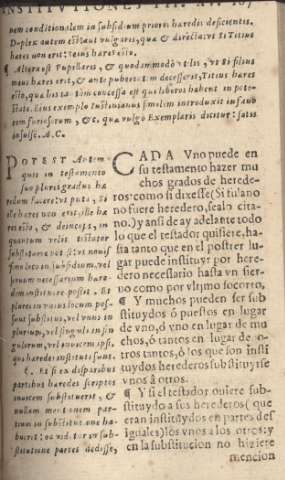 INSTITVTIONES
nem conditionalem in subsidium priores haredes deficientes.
Duplex autem est: aut vulgaris, quæ & directa: vt si Titius
hæres non erit: titus hæres esto.
¶ Altera est Pupillaris, & quodammodo talis, vt si filius
meus hæres erit, & ante pubertatem decesserit, Titius hæres
esto, qua lis tam concessa est qui liberos habent in pote-
state. Eius exemplo Iustinianus similem introduxit in fauo
rem furiosorum, &c. qua vulgo Exemplaris dicitur: satis
insulse. A.C.
POTEST Autem
quis in testamento
suo plures gradus hæ
redum facere: vt puta, si
ille hæres non erit, ille hæ
res esto, & deinceps, in
quantum velit testator
substituere
simo loco in subsidium, vel
seruum necessarium hære-
dem instituere possit. Et
plures in vnius locum pos-
sunt substitui, vel vnus in
plurium, vel singuli in sin
gulorum, vel inuicem ipsi,
qui hæredes instituti sunt.
¶ Et si ex disparibus
partibus hæredes scriptos
inuicem substituerit, &
nullam mentionem par-
tium in substitutione ha
buerit: eas videtur in sub-
stitutione partes dedisse,
CADA Vno puede en
su testamento hazer mu
chos grados de herede-
ros: como si dixesse (Si fulano
no fuere heredero, sealo çita-
no.) y ansi de ay adelante todo
lo que el testador quisiere, ha-
sta tanto que en el postrer lu-
gar puede instituyr por here-
dero necessario hasta vn sier-
uo como por vltimo socorro,
¶ Y muchos pueden ser sub
stituydos ó puestos en lugar
de vno, ó vno en lugar de mu
chos, ó tantos en lugar de o-
tros tantos, ó los que son insti
tuydos herederos substituyrse
vnos á otros.
¶ Y si el testador ouiere sub-
stituydo a sus herederos (que
eran instituydos en partes des
iguales) los vnos a los otros: y
en la substitucion no hiziere
mencion